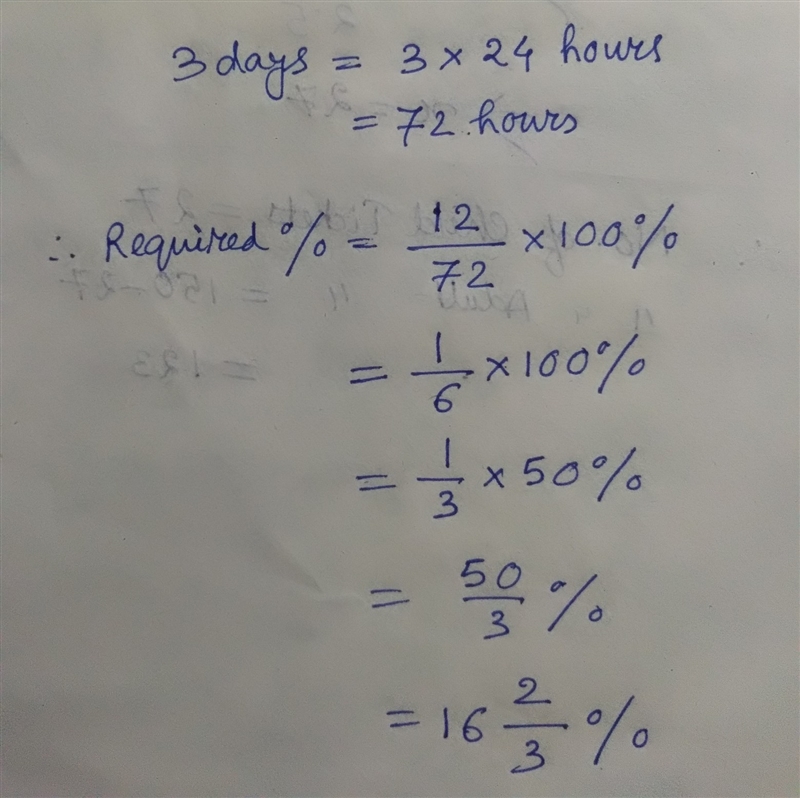 3 days = 3 × 24 hours
= 72 hours
∴ Required % = 12/72 × 100%
= 1/6 × 100%
= 1/3 × 50%
= 50/3 %
= 16 2/3 %